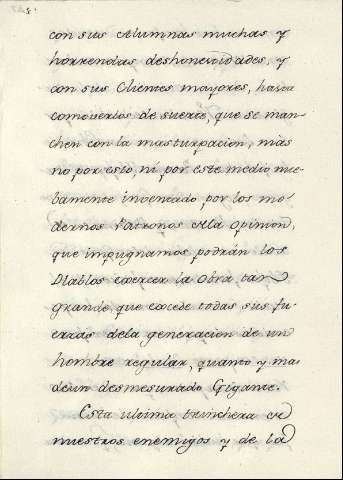 con sus Alumnas muchas y
horrendas deshonestidades, y
con sus Clientes mayores, hasta
comoverlos de suerte, que se man-
chen con la masturpacion, màs
no por esto, ni por este medio nue-
bamente inventado por los mo-
dernos Patronos dela opinion,
que impugnamos podràn los
Diablos exercer la obra tan
grande, que excede todas sus fu-
erzas dela generacion de un
hombre regular, quanto y mas
deun desmesurado Gigante.
Esta ultima trinchera de
nuestros enemigos y de la